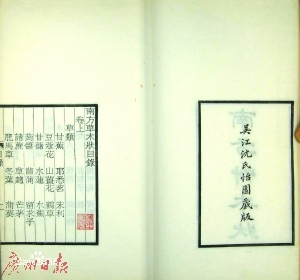 吴江沈氏怡園藏版
南方草木狀目録
卷上
草類
甘蕉 耶悉茗 末利
豆蔻花 山薑花 鶴草
甘藷 水蓮 水蕉
蒟醬 菖蒲 留求子
諸蔗 草麴 芒茅
肥馬草 冬葉 蒲葵
廣州日报